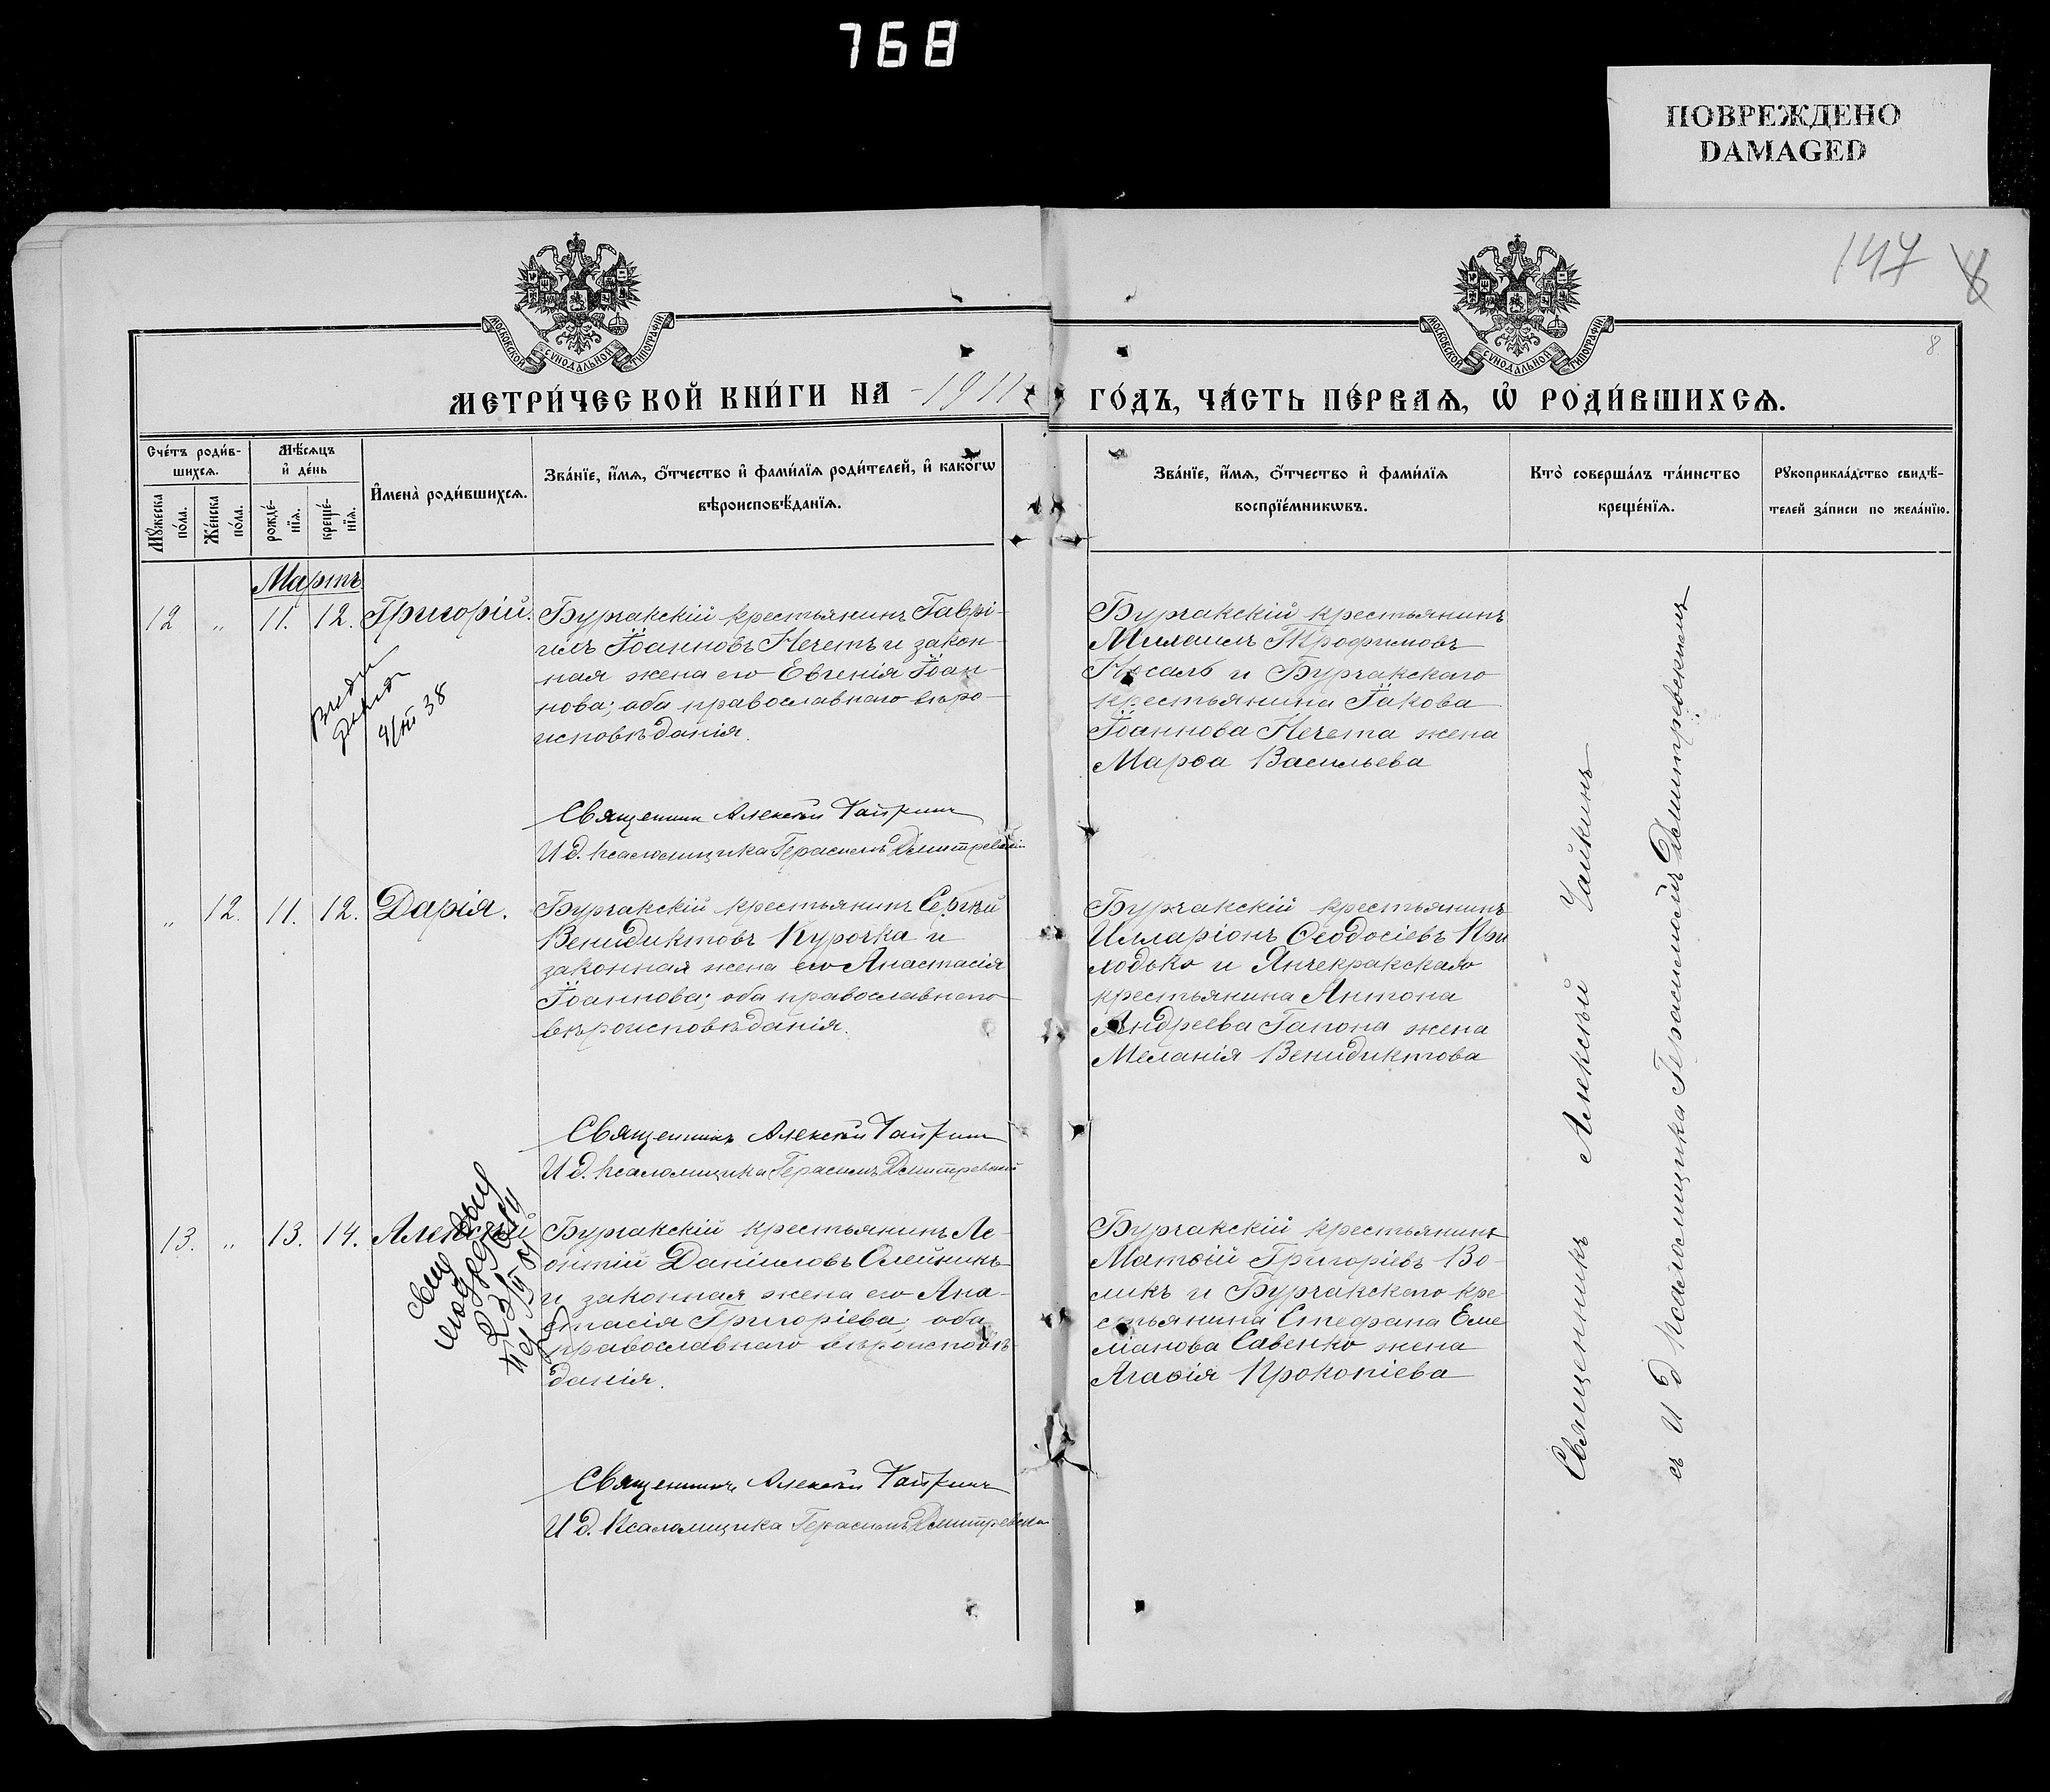 768
ПОВРЕЖДЕНО
DAMAGED
147
8
8
МОСКОВСКОЙ СѴНОДАЛЬНОЙ ТИПОГРАФІИ
МОСКОВСКОЙ СѴНОДАЛЬНОЙ ТИПОГРАФІИ
МЕТРИ́ЧЕСКОЙ КНИ́ГИ НА 1911 ГО́ДЪ, ЧА́СТЬ ПЕ́РВАѦ, Ѡ҆ РОДИ́ВШИХСѦ.
Сче́тъ роди́в-
шихсѧ.
Мꙋ́жеска по́ла.
Же́нска по́ла.
Мѣ́сѧцъ
и҆ де́нь
рожде́-
нїѧ.
креще́-
нїѧ.
И҆мена̀ роди́вшихсѧ.
Зва́нїе, и҆́мѧ, ѻ҆́тчество и҆ фами́лїѧ роди́телей, и҆ како́гѡ
вѣроисповѣ́данїѧ.
Зва́нїе, и҆́мѧ, ѻ҆́тчество и҆ фами́лїѧ
воспрїе́мникѡвъ.
Кто̀ соверша́лъ та́инство
креще́нїѧ.
Рꙋкоприкла́дство свидѣ́-
телей за́писи по жела́нїю.
Мартъ
12 „ 11. 12. Григорій.
Бурчакскій крестьянинъ Гаврі-
илъ Іоанновъ Нечетъ и закон-
ная жена его Евгенія Іоан-
нова; оба православнаго вѣро-
исповѣданія.
38
Священникъ Алексѣй Чайкинъ
И д. псаломщика Герасимъ Дмитревскій
Бурчакскій крестьянинъ
Михаилъ Трофимовъ
Носаль и Бурчакскаго
крестьянина Іакова
Іоаннова Нечета жена
Марѳа Васильева
„ 12. 11. 12. Дарія.
Бурчакскій крестьянинъ Сергѣй
Венидиктовъ Курочка и
законная жена его Анастасія
Іоаннова; оба православнаго
вѣроисповѣданія.
Священникъ Алексѣй Чайкинъ
И д. псаломщика Герасимъ Дмитревскій
Бурчакскій крестьянинъ
Илларіонъ Ѳеодосіевъ При
ходько и Янчекракскаго
крестьянина Антона
Андреева Гапона жена
Меланія Венидиктова
13. „ 13. 14. Алексѣй
Бурчакскій крестьянинъ Ле-
онтій Даніиловъ Олейникъ
и законная жена его Ана-
стасія Григоріева; оба
православнаго вѣроисповѣ-
данія.
Священникъ Алексѣй Чайкинъ
И д. Псаломщика Герасимъ Дмитревскій
Бурчакскій крестьянинъ
Матѳій Григоріевъ Во-
ликъ и Бурчакскаго кре
стьянина Стефана Еме
ліанова Савенко жена
Агаѳія Прокопіева
Священникъ Алексѣй Чайкинъ
съ И д Псаломщика Герасимомъ Дмитревскимъ